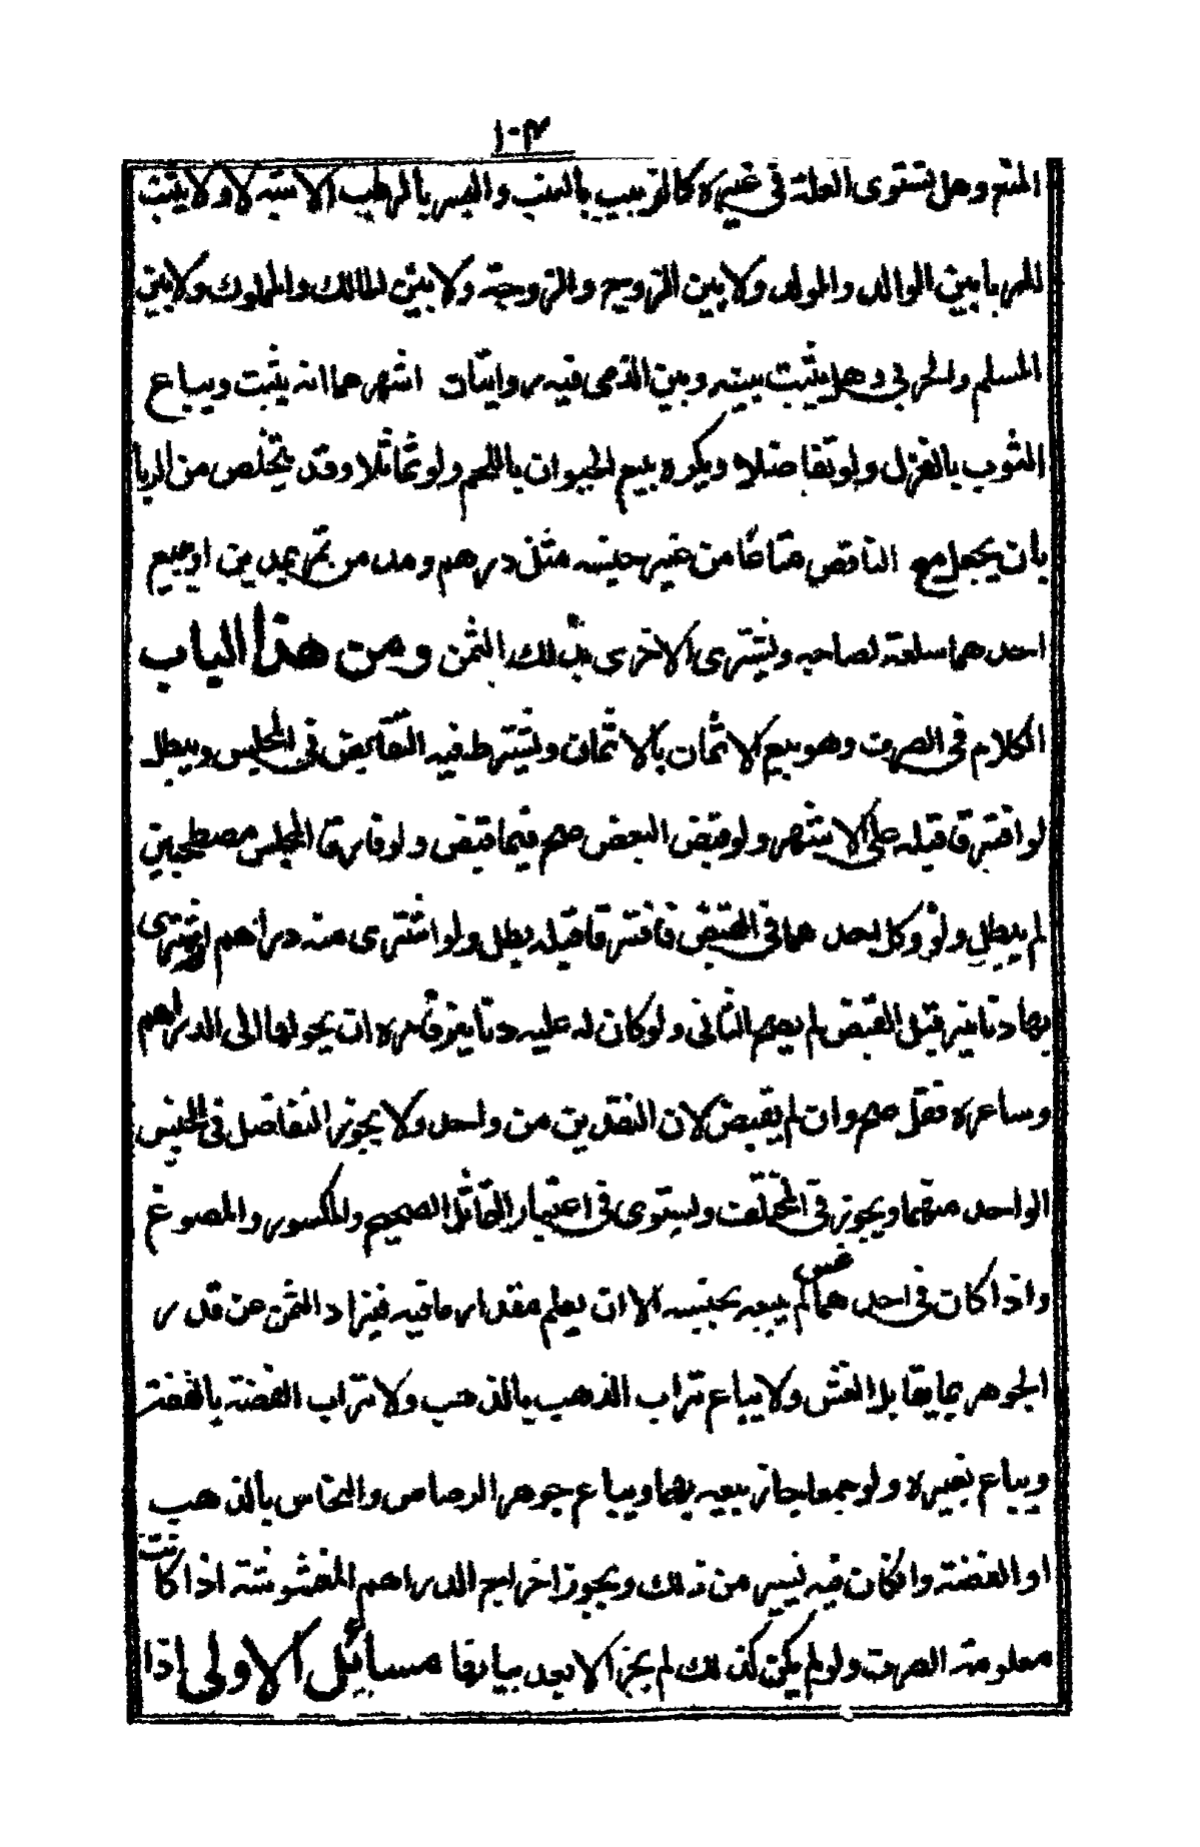 ١٠٣
المنع وهل تستوى العلة فى غيره كالزبيب بالعنب والبسر بالرطب الاشبه لا ولا يثبت
للربا بين الوالد والولد ولا بين الزوج والزوجة ولا بين المالك والمملوك ولا بين
المسلم والحربى وهل يثبت بينه وبين الذمى فيه روايتان اشهرهما انه يثبت ويباع
الثوب بالغزل ولو تفاضلا ويكره بيع الحيوان باللحم ولو تماثلا وقد يتخلص من الربا
بان يجعل مع الناقص متاعا من غير جنسه مثل درهم ومد من تمر بمدين او يبيع
احدهما سلعته لصاحبه ويشترى الاخرى بذلك الثمن ومن هذا الباب
الكلام فى الصرف وهو بيع الاثمان بالاثمان ويشترط فيه التقابض فى المجلس ويبطل
لو افترقا قبله على الاشهر ولو قبض البعض صح فيما قبض ولو فارقا المجلس مصطحبين
لم يبطل ولو وكل احدهما فى القبض فافترقا قبله بطل ولو اشترى منه دراهم ثم اشترى
بها دنانير قبل القبض لم يصح الثانى ولو كان له عليه دنانير فامره ان يحولها الى الدراهم
وساعره فقبل صح وان لم يقبض لان النقدين من واحد ولا يجوز التفاضل فى الجنس
الواحد منهما ويجوز فى المختلف ويستوى فى اعتبار التماثل الصحيح والمكسور والمصوغ
واذا كان فى احدهما غش لم يبعه بجنسه الا ان يعلم مقدار ما فيه فيزاد الثمن عن قدر
الجوهر بما يقابل الغش ولا يباع تراب الذهب بالذهب ولا تراب الفضة بالفضة
ويباع بغيره ولو جمعا جاز بيعه بهما ويباع جوهر الرصاص والنحاس بالذهب
او الفضة وان كان فيه يسير من ذلك ويجوز اخراج الدراهم المغشوشة اذا كانت
معلومة الصرف ولو لم يكن كذلك لم يجز الا بعد بيانها مسائل الاولى اذا